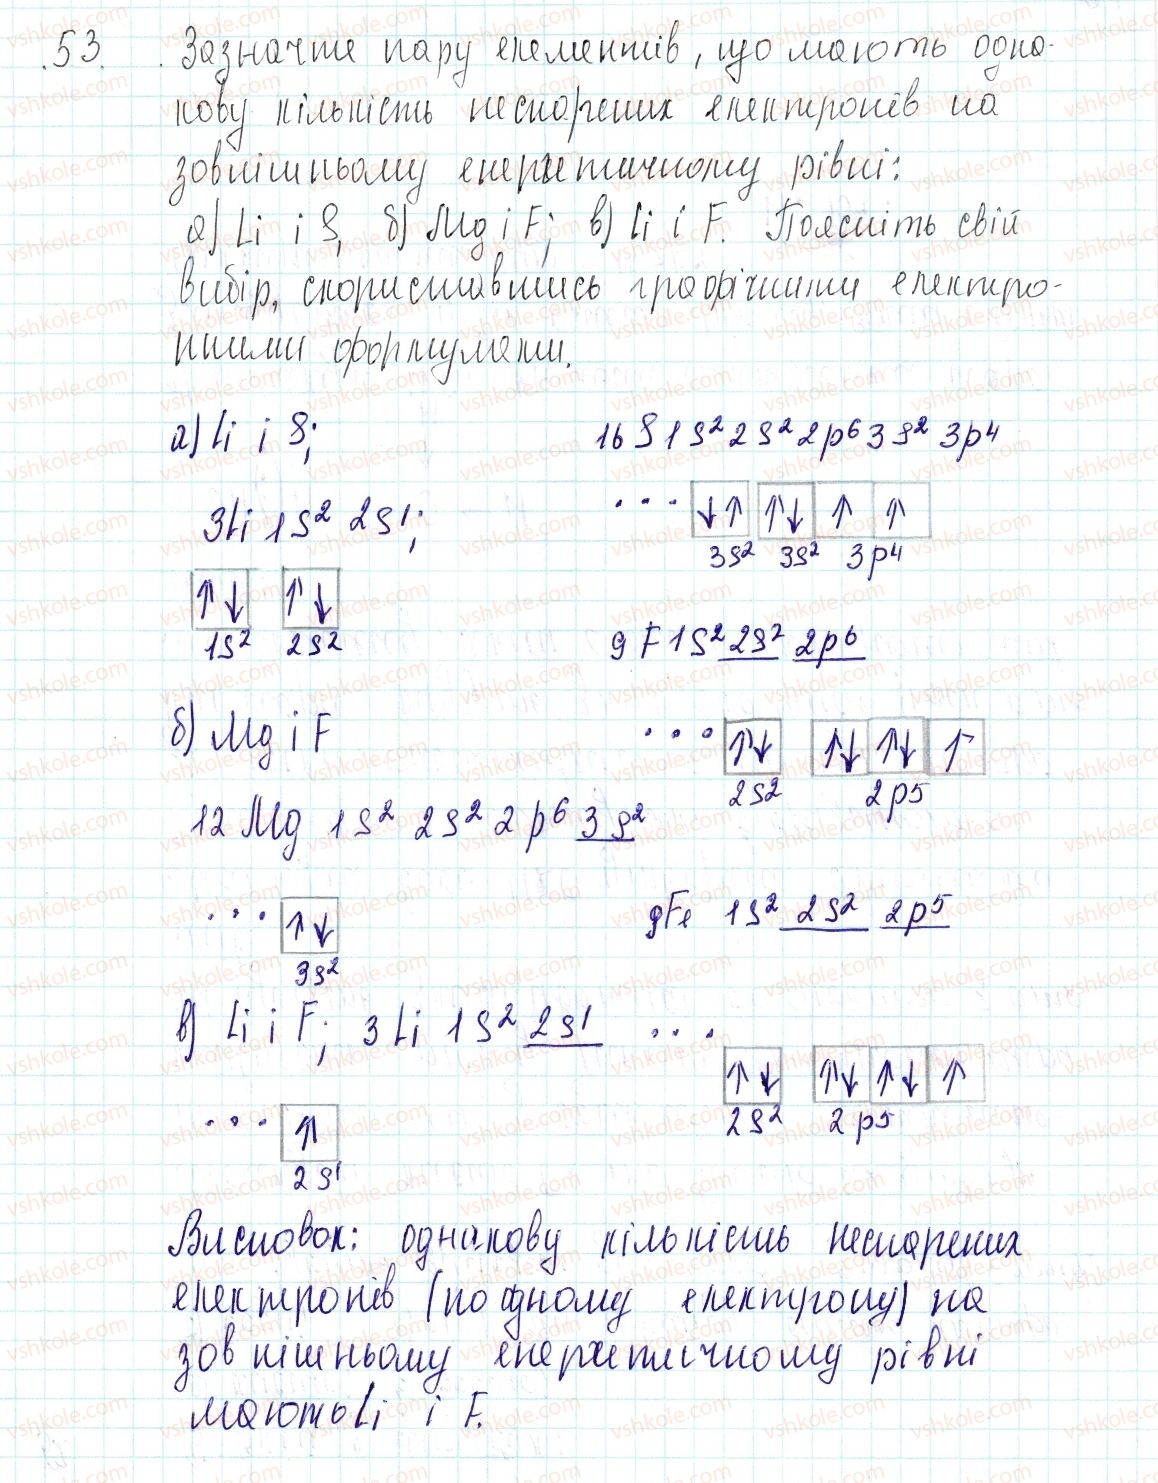 53. Зазначте пару елементів, що мають одна-
кову кількість неспарених електронів на
зовнішньому енергетичному рівні:
а) Li і S, б) Mg і F; в) Li і F. Поясніть свій
вибір, скориставшись графічними електро-
нними формулами.
а) Li і S; 16 S 1s² 2s² 2p⁶ 3s² 3p⁴
3Li 1s² 2s¹; ... ↓↑ ↑↓ ↑ ↑
3s² 3s² 3p⁴
↑↓ ↑↓
1s² 2s²
9 F 1s² 2s² 2p⁶
б) Mg і F ... ↑↓ ↑↓ ↑↓ ↑
2s² 2p⁵
12 Mg 1s² 2s² 2p⁶ 3s²
... ↑↓
3s²
9Fe 1s² 2s² 2p⁵
в) Li і F; 3 Li 1s² 2s¹ ...
↑↓ ↑↓ ↑↓ ↑
2s² 2p⁵
... ↑
2s¹
Висновок: однакову кількість неспарених
електронів (по одному електрону) на
зовнішньому енергетичному рівні
мають Li і F.